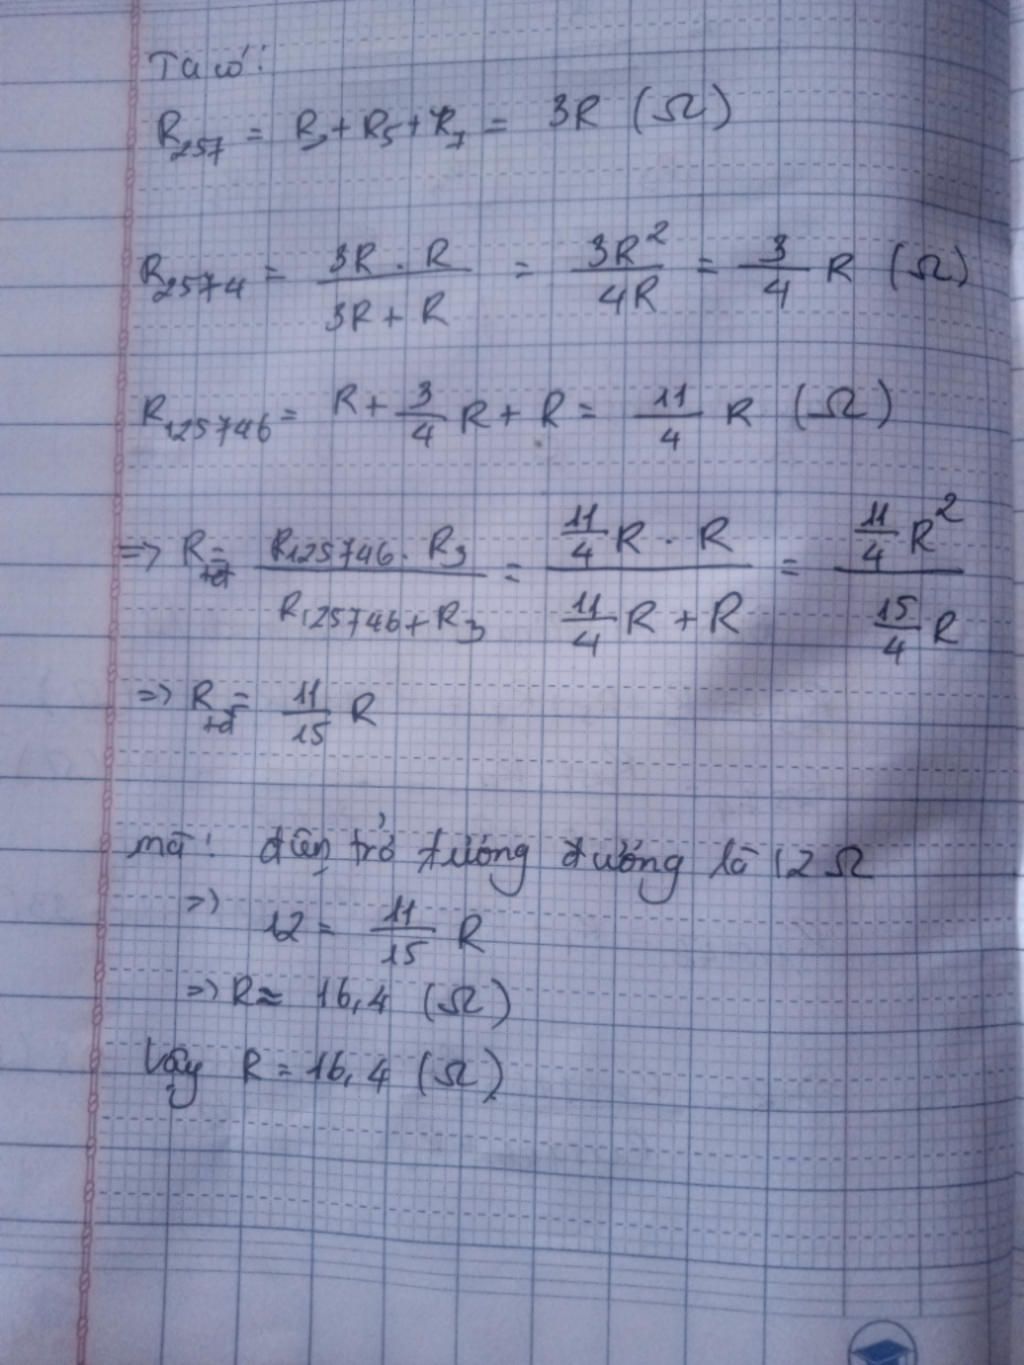 Ta có:
R₂₅₇ = R₂ + R₅ + R₇ = 3R (Ω)
R₂₅₇₄ = 3R . R / 3R + R = 3R² / 4R = 3/4 R (Ω)
R₁₂₅₇₄₆ = R + 3/4 R + R = 11/4 R (Ω)
=> R_tđ = R₁₂₅₇₄₆ . R₃ / R₁₂₅₇₄₆ + R₃ = 11/4 R . R / 11/4 R + R = 11/4 R² / 15/4 R
=> R_tđ = 11/15 R
mà: điện trở tương đương là 12 Ω
=> 12 = 11/15 R
=> R ≈ 16,4 (Ω)
Vậy R = 16,4 (Ω)